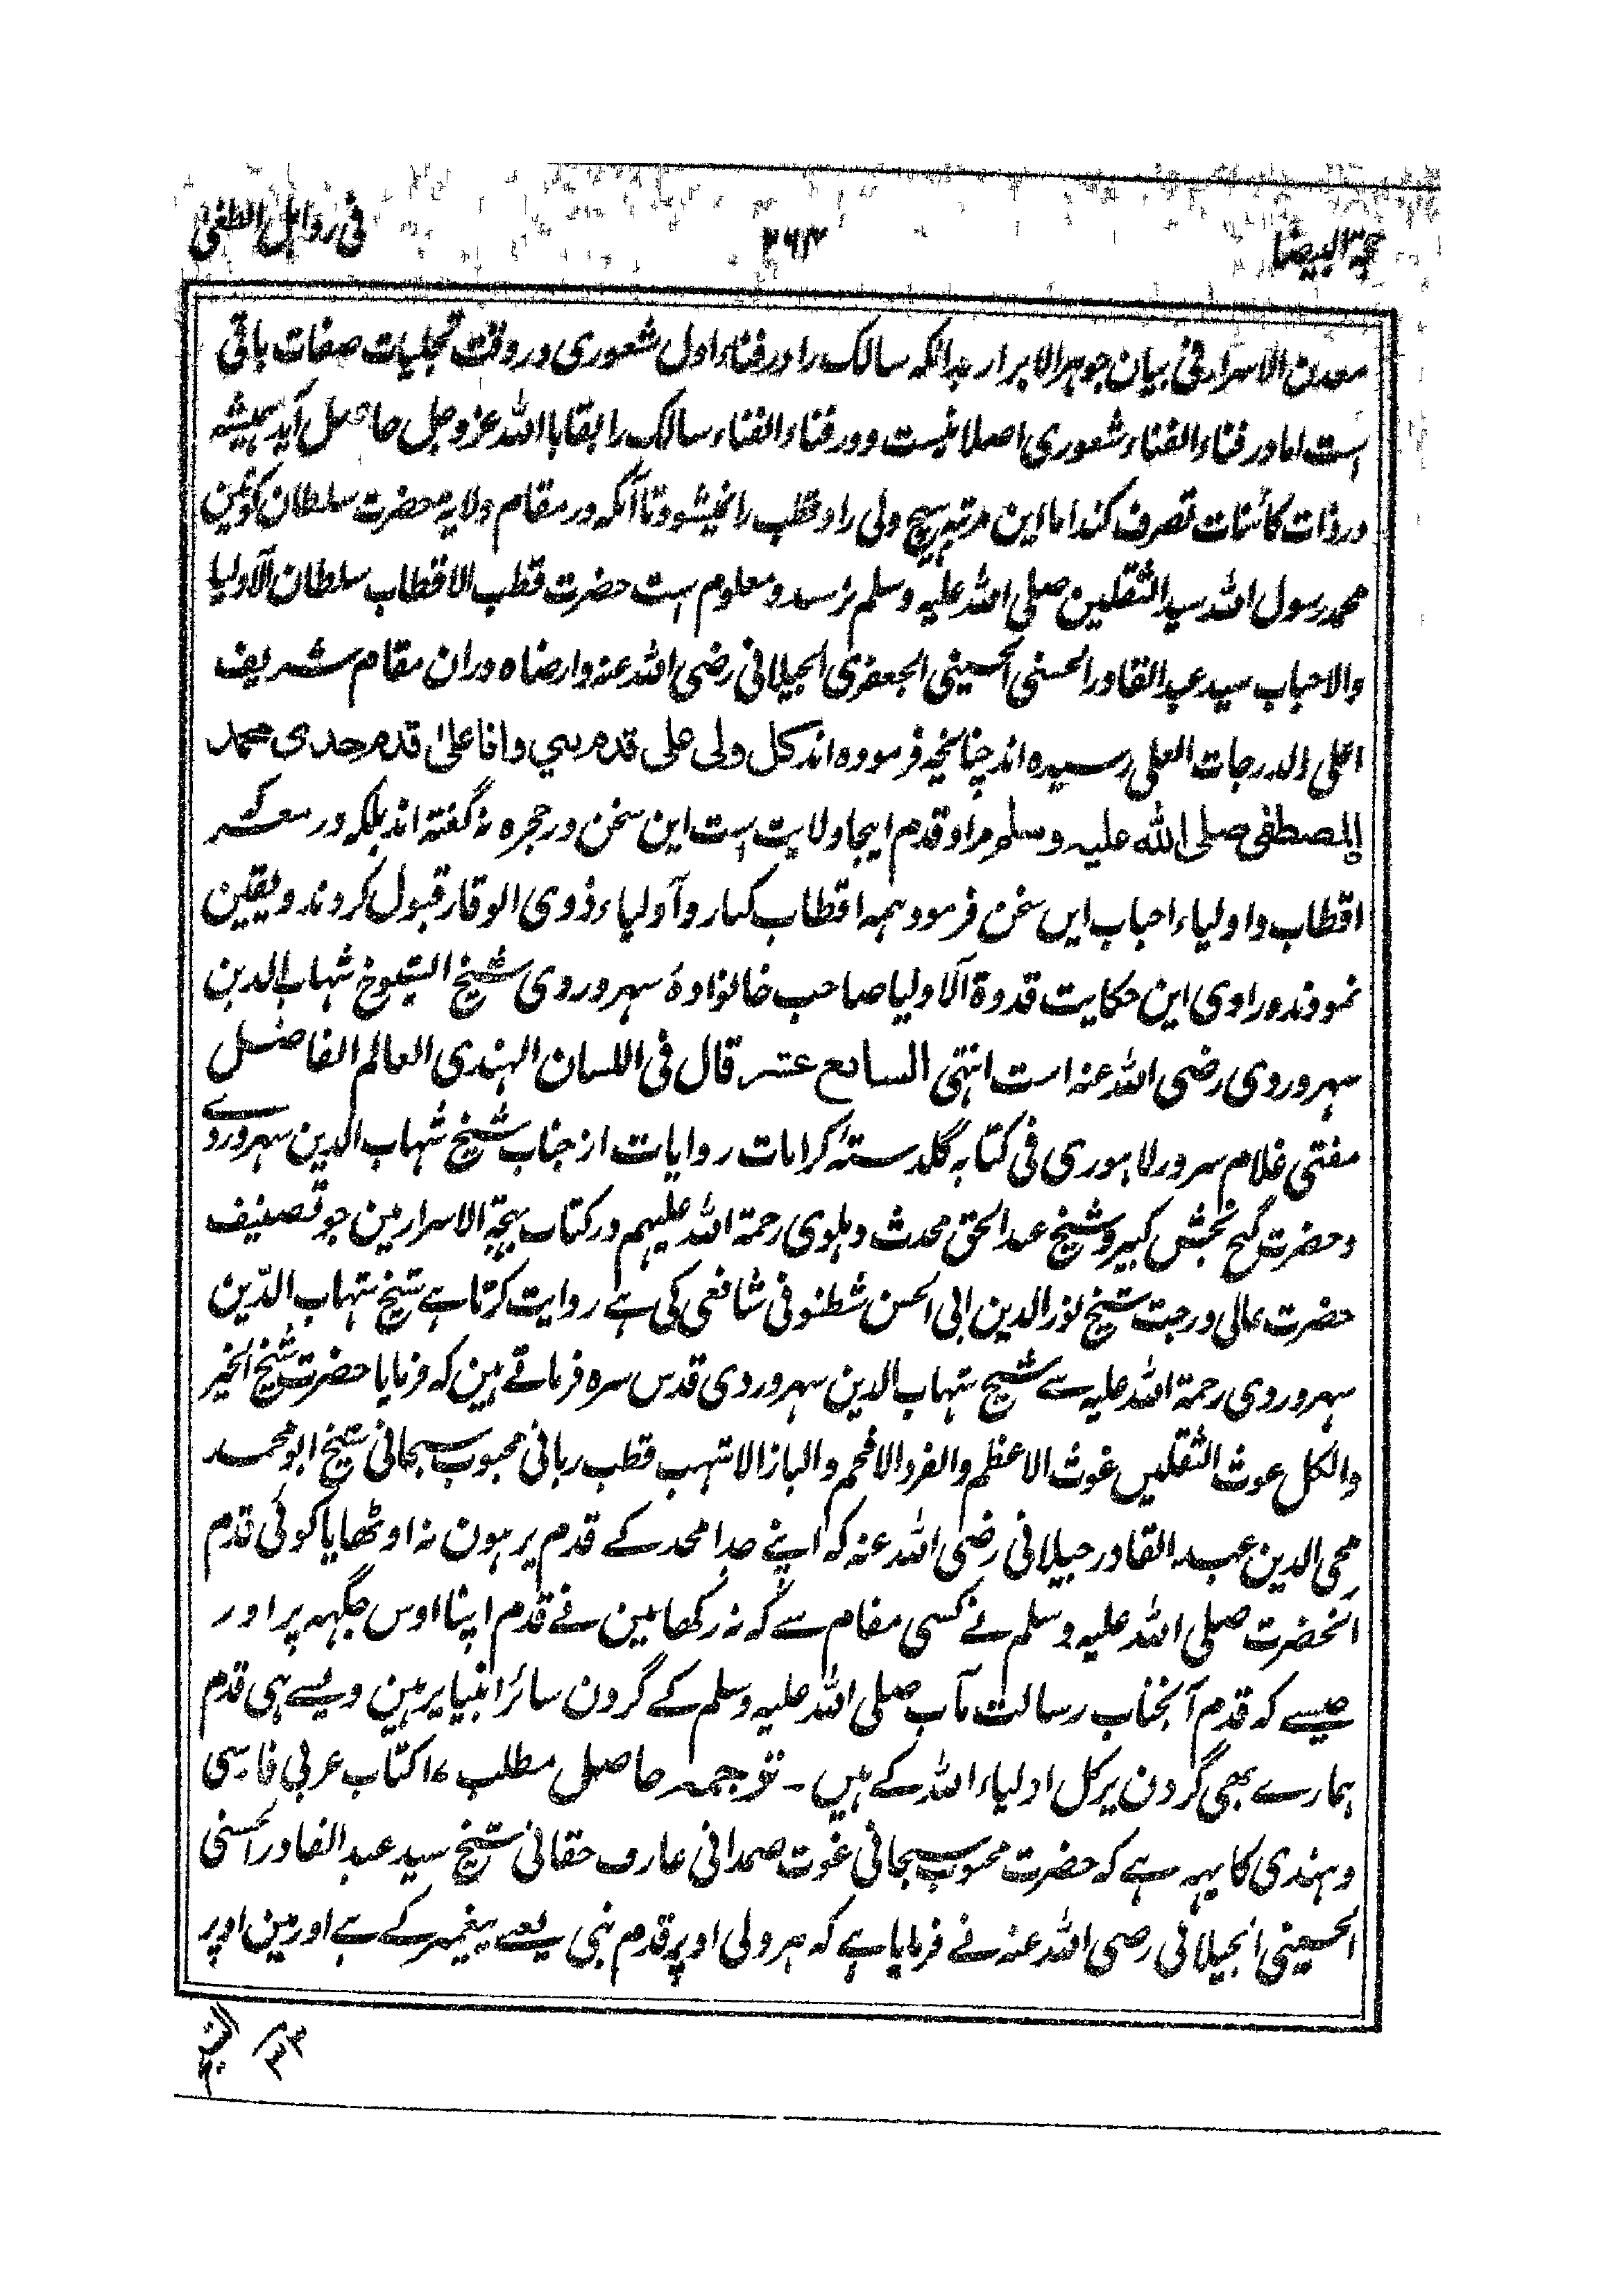 حجة البیضا ۲۶۴ فی رد اہل الطغیٰ
معدن الاسرار فی بیان جوہر الابرار بدانکہ سالک را در فناء اول شعوری در وقت تجلیات صفات باقی
است اما در فناء الفناء شعوری اصلا نیست و در فناء الفناء سالک را بقا باللہ عز وجل حاصل آید ہمیشہ
در ذات کائنات تصرف کند اما این مرتبہ ہیچ ولی را و قطب را نمیشود تا آنکہ در مقام ولایہ حضرت سلطان کونین
محمد رسول اللہ سید الثقلین صلی اللہ علیہ وسلم نرسد و معلوم است حضرت قطب الاقطاب سلطان الاولیا
والاحباب سید عبد القادر الحسنی الحسینی الجعفری الجیلانی رضی اللہ عنہ وارضاہ دران مقام شریف
اعلی الدرجات العلی رسیدہ اند چنانچہ فرمودہ اند کل ولی علی قدم نبی وانا علیٰ قدم جدی محمد
المصطفی صلی اللہ علیہ وسلم مراد قدم اینجا ولایت است این سخن در حجرہ نہ گفتہ اند بلکہ در معرکہ
اقطاب و اولیاء احباب ایں سخن فرمود ہمہ اقطاب کبار و آولیاء ذوی الوقار قبول کردند و یقین
نمودند و راوی این حکایت قدوۃ آلاولیا صاحب خانوادۂ سہروردی شیخ الشیوخ شہاب الدین
سہروردی رضی اللہ عنہ است انتہی السابع عشر قال فی اللسان الہندی العالم الفاضل
مفتی غلام سرور لاہوری فی کتابہ گلدستۂ کرامات روایات از جناب شیخ شہاب الدین سہروردے
و حضرت گنج بخش کبیر و شیخ عبد الحق محدث دہلوی رحمۃ اللہ علیہم در کتاب بہجۃ الاسرار مین جو تصنیف
حضرت عالی درجت شیخ نور الدین ابی الحسن شطنوفی شافعی کی ہے روایت کرتا ہے شیخ شہاب الدّین
سہروردی رحمۃ اللہ علیہ سے شیخ شہاب الدین سہروردی قدس سرہ فرماتے ہین کہ فرمایا حضرت شیخ الخیر
والکل غوث الثقلیں غوث الاعظم والفرد الافخم والباز الاشہب قطب ربانی محبوب سبحانی شیخ ابو محمد
محی الدین عبد القادر جیلانی رضی اللہ عنہ کہ اپنے جد امجد کے قدم پر ہون نہ اوٹھایا کوئی قدم
آنحضرت صلی اللہ علیہ وسلم نے کسی مقام سے کہ نہ رکھا مین نے قدم اپنا اوس جگہہ پر اور
جیسے کہ قدم آنجناب رسالت مآب صلی اللہ علیہ وسلم کے گردن سائر انبیا پر ہین ویسے ہی قدم
ہمارے بھی گردن پر کل اولیاء اللہ کے ہیں ۔ ترجمہ حاصل مطلب ۱۷ کتاب عربی فارسی
و ہندی کا یہہ ہے کہ حضرت محبوب سبحانی غوث صمدانی عارف حقانی شیخ سید عبد القادر الحسنی
الحسینی الجیلانی رضی اللہ عنہ نے فرمایا ہے کہ ہر ولی اوپر قدم نبی یعنے پیغمبر کے ہے اور مین اوپر